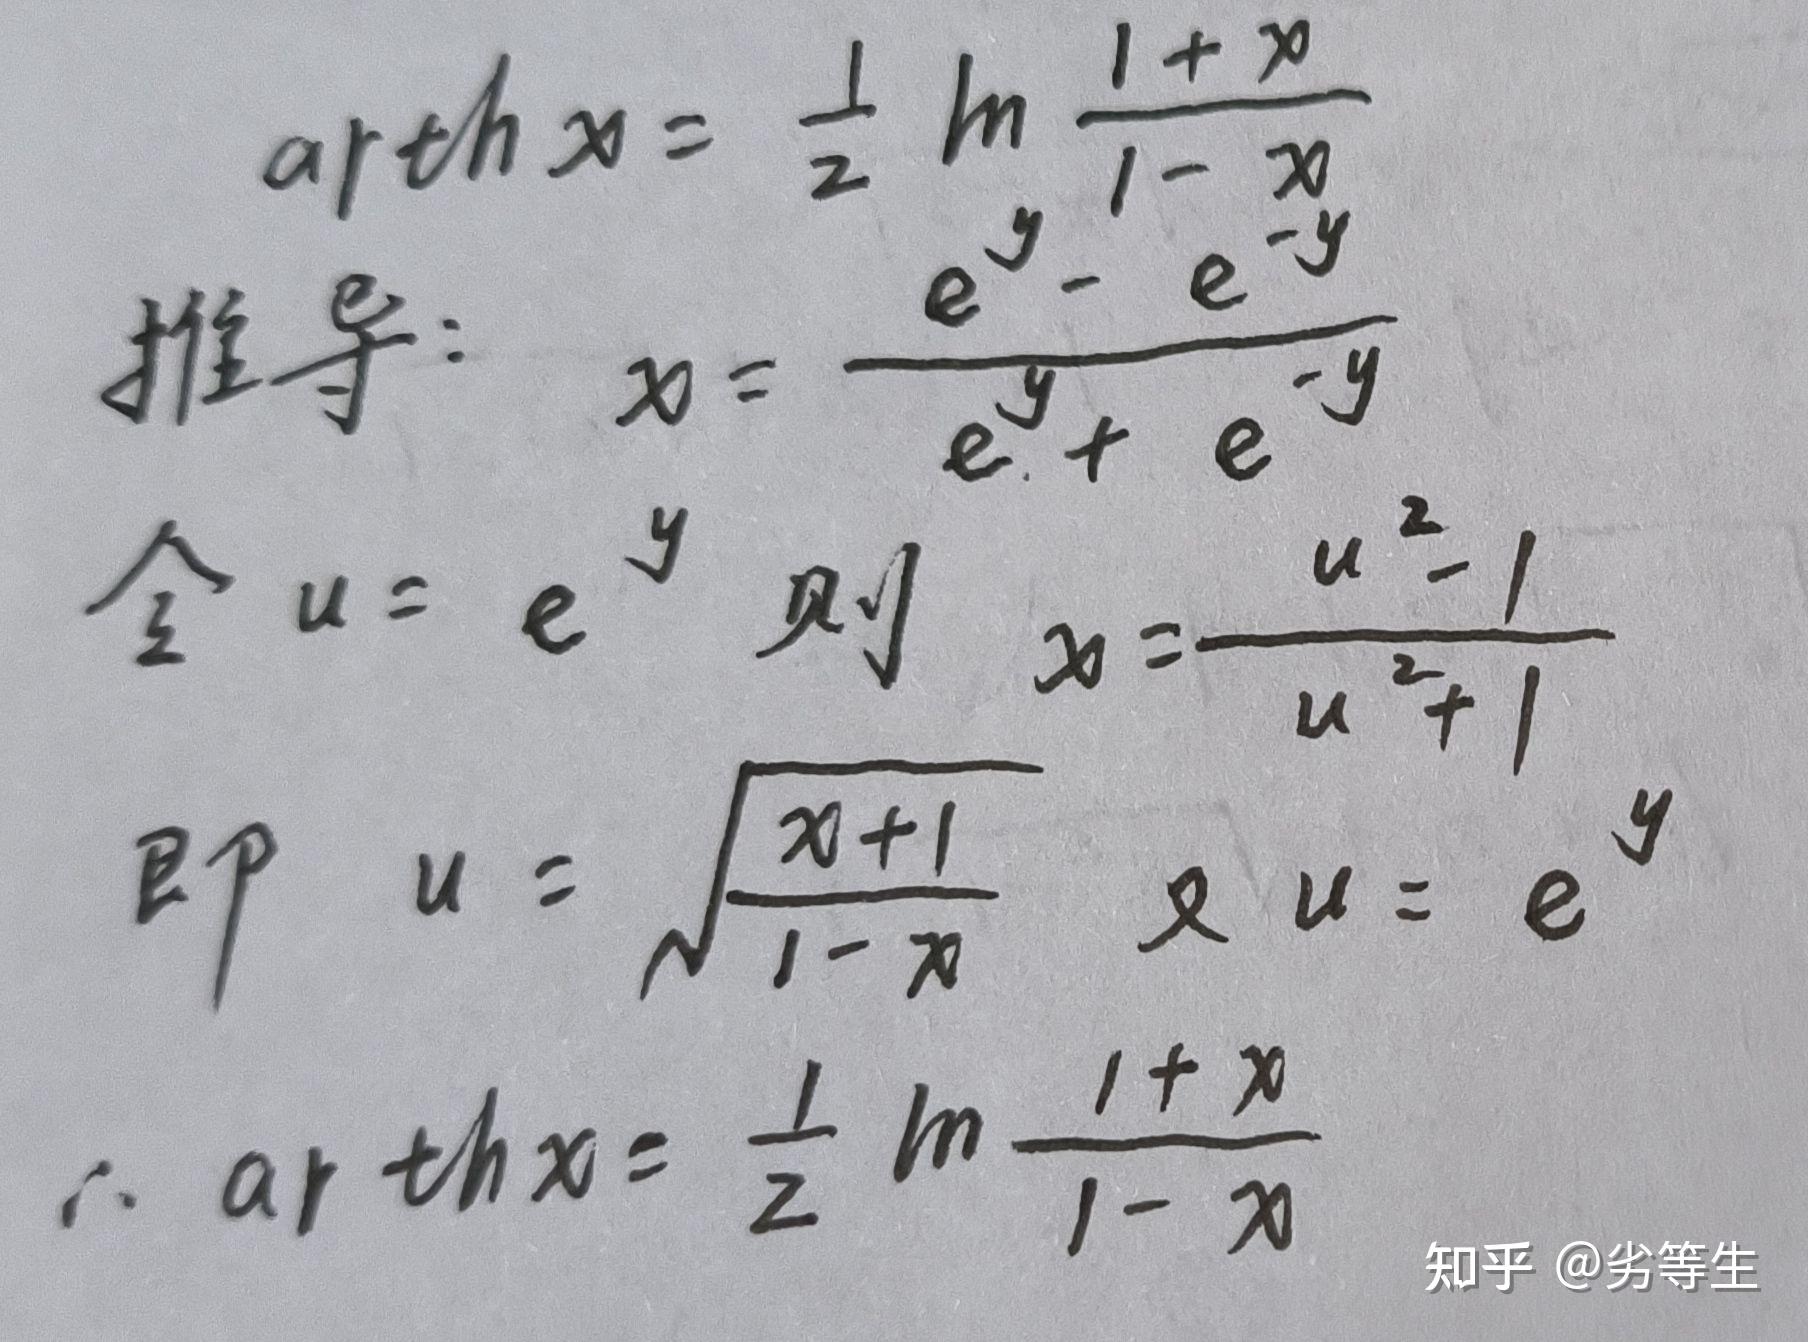 arthx = 1/2 ln (1+x)/(1-x)
推导: x = (e^y - e^-y)/(e^y + e^-y)
令 u = e^y 则 x = (u²-1)/(u²+1)
即 u = √((x+1)/(1-x)) 又 u = e^y
∴ arthx = 1/2 ln (1+x)/(1-x)
知乎 @劣等生